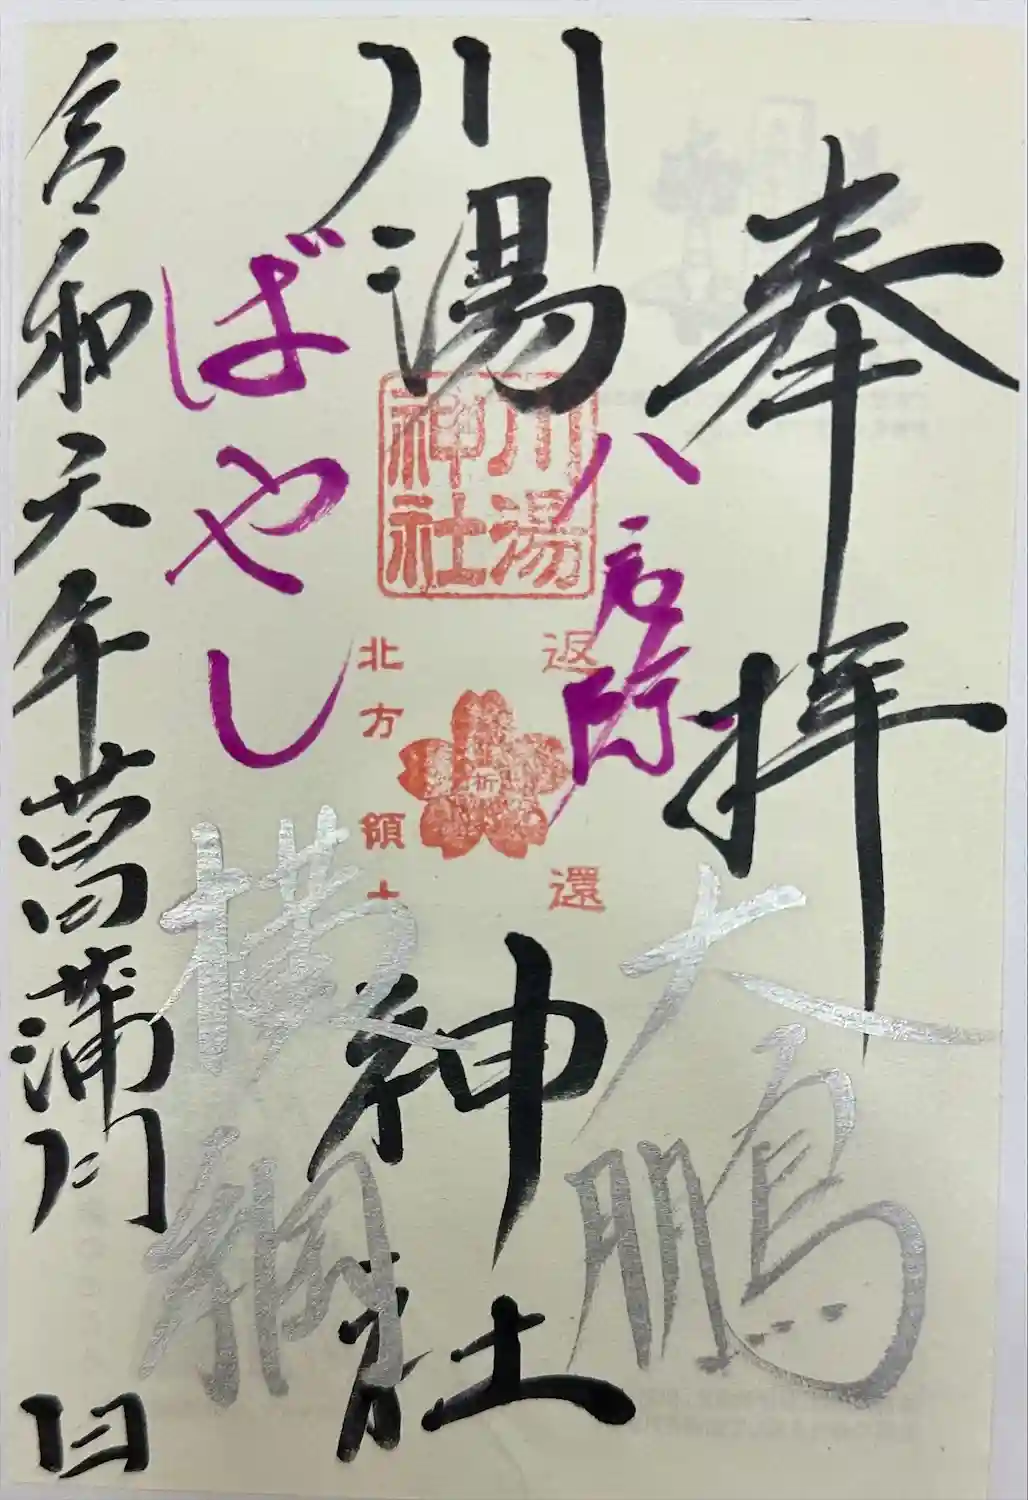 奉拝
大鵬
川湯神社
川湯
神社
返還
祈
北方領土
ばやし
横綱
令和 年菖蒲月 日